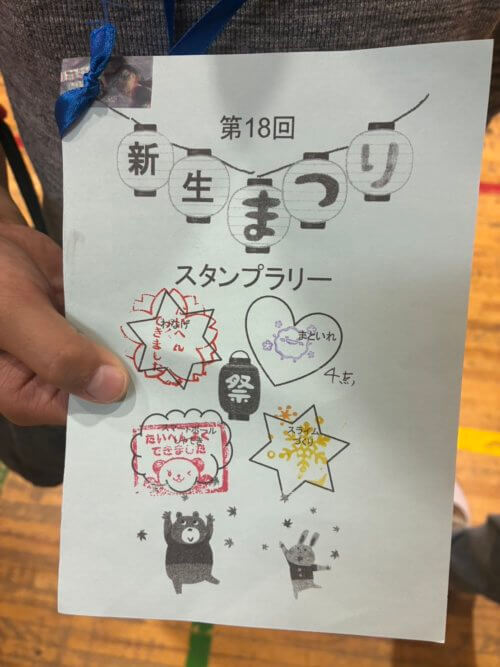 第18回
新生まつり
スタンプラリー
わなげ
たいへん
できました
まといれ
4点
祭
スマートボール
たいへんよく
できました
スライム
づくり